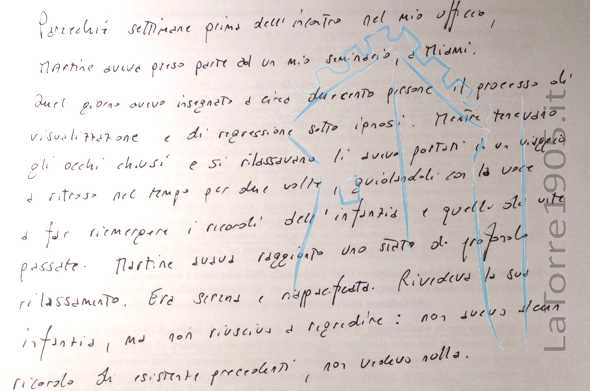 Parecchie settimane prima dell'incontro nel mio ufficio,
Martine aveva preso parte ad un mio seminario, a Miami.
Quel giorno avevo insegnato a circa duecento persone il processo di
visualizzazione e di regressione sotto ipnosi. Mentre tenevano
gli occhi chiusi e si rilassavano li avevo portati in un viaggio
a ritroso nel tempo per due volte, guidandoli con la voce
a far riemergere i ricordi dell'infanzia e quello di vite
passate. Martine aveva raggiunto uno stato di profondo
rilassamento. Era serena e rappacificata. Rivedeva la sua
infanzia, ma non riusciva a regredire: non aveva alcun
ricordo di esistenze precedenti, non vedeva nulla.
LaTorre1905.it